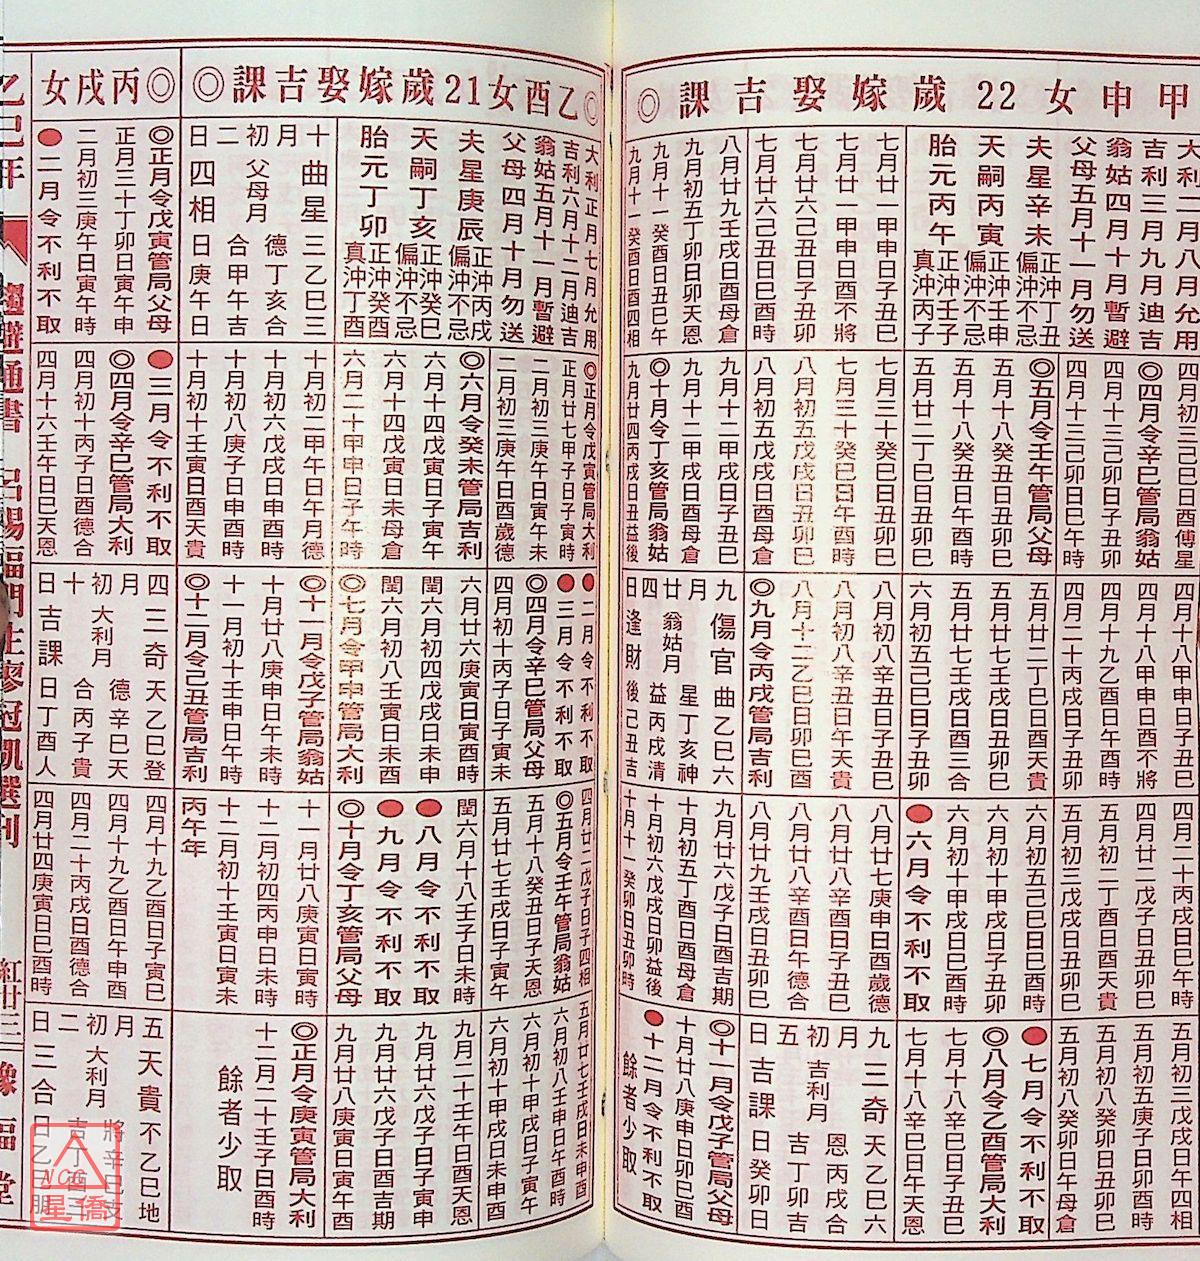 甲申女22歲嫁娶吉課◎
大利二月八月允用
吉利三月九月迪吉
翁姑四月十月暫避
父母五月十一月勿送
夫星辛未
正沖丁丑
偏沖不忌
天嗣丙寅
正沖壬申
偏沖不忌
胎元丙午
正沖壬子
真沖丙子
七月廿一甲申日子丑巳
七月廿一甲申日酉不將
七月廿六己丑日子丑卯
七月廿六己丑日巳酉時
八月廿九壬戌日酉母倉
九月初五丁卯日卯天恩
九月十一癸酉日丑巳午
九月十一癸酉日酉四相
四月初三己巳日酉傅星
◎四月令辛巳管局翁姑
四月十三己卯日子丑卯
四月十三己卯日巳午時
◎五月令壬午管局父母
五月十八癸丑日丑卯巳
五月十八癸丑日午酉時
五月廿二丁巳日丑卯巳
七月三十癸巳日丑卯巳
七月三十癸巳日午酉時
八月初五戊戌日丑卯巳
八月初五戊戌日酉母倉
九月十二甲戌日子丑巳
九月十二甲戌日酉母倉
◎十月令丁亥管局翁姑
九月廿四丙戌日丑益後
四月十八甲申日子丑巳
四月十八甲申日酉不將
四月十九乙酉日午酉時
四月二十丙戌日子丑卯
五月廿二丁巳日酉天貴
五月廿七壬戌日丑卯巳
五月廿七壬戌日酉三合
六月初五己巳日子丑卯
八月初八辛丑日子丑巳
八月初八辛丑日午天貴
八月初八辛丑日午酉時
八月十二乙巳日卯巳酉
◎九月令丙戌管局吉利
九月廿四日
翁姑月
傷官逢財
曲乙巳六
星丁亥神
益丙戌清
後己丑吉
四月二十丙戌日巳午酉
四月廿二戊子日丑卯巳
五月初二丁酉日酉天貴
五月初三戊戌日子丑卯
六月初五己巳日巳酉時
六月初十甲戌日子丑卯
六月初十甲戌日巳酉時
●六月令不利不取
八月廿七庚申日酉歲德
八月廿八辛酉日子丑巳
八月廿八辛酉日午德合
八月廿九壬戌日丑卯巳
九月廿六戊子日酉吉期
十月初五丁酉日酉母倉
十月初六戊戌日卯益後
十月十一癸卯日丑卯時
五月初三戊戌日巳午酉
五月初五庚子日酉四相
五月初八癸卯日丑卯巳
五月初八癸卯日午母倉
●七月令不利不取
◎八月令乙酉管局大利
七月十八辛巳日子丑巳
七月十八辛巳日午天恩
九月初五日
吉利月
三奇吉課
天乙巳六
恩丙戌合
吉丁卯吉
日癸卯日
◎十一月令戊子管局父母
十月廿八庚申日卯巳酉
●十二月令不利不取
餘者少取
◎乙酉女21歲嫁娶吉課◎
大利正月七月允用
吉利六月十二月迪吉
翁姑五月十一月暫避
父母四月十月勿送
夫星庚辰
正沖丙戌
偏沖不忌
天嗣丁亥
正沖癸巳
偏沖不忌
胎元丁卯
正沖癸酉
真沖丁酉
十月初二日
父母月
曲星四相
三乙巳三
德丁亥合
合甲午吉
日庚午日
◎正月令戊寅管局大利
正月廿七甲子日子寅時
二月初三庚午日寅午未
二月初三庚午日酉歲德
◎六月令癸未管局吉利
六月十四戊寅日子寅午
六月十四戊寅日未母倉
六月二十甲申日子午時
十月初二甲午日午月德
十月初六戊戌日申酉時
十月初八庚子日申酉時
十月初十壬寅日酉天貴
●二月令不利不取
●三月令不利不取
◎四月令辛巳管局父母
四月初十丙子日子寅未
六月廿六庚寅日子未時
閏六月初四戊戌日未申
閏六月初八壬寅日未酉
◎七月令甲申管局大利
◎十一月令戊子管局翁姑
十月廿八庚申日午未時
十一月初十壬申日午時
◎十二月令己丑管局吉利
四月廿二戊子日子寅四相
◎五月令壬午管局翁姑
五月十八癸丑日子天恩
五月廿七壬戌日子寅午
閏六月十八壬子日未時
●八月令不利不取
●九月令不利不取
◎十月令丁亥管局父母
十一月廿八庚寅日寅時
十二月初四丙申日未時
十二月初十壬寅日寅未
丙午年
五月廿七壬戌日未申酉
六月初八壬申日午酉時
六月初十甲戌日子寅午
六月初十甲戌日未申酉
九月二十壬午日酉天恩
九月廿六戊子日子寅申
九月廿六戊子日酉吉期
九月廿八庚寅日寅午酉
◎正月令庚寅管局大利
十二月二十壬子日酉時
餘者少取
◎丙戌女
◎正月令戊寅管局父母
正月三十丁卯日寅午申
二月初三庚午日寅午時
●二月令不利不取
●三月令不利不取
◎四月令辛巳管局大利
四月初十丙子日酉德合
四月十六壬午日巳天恩
四月初十日
大利月
三奇吉課
天乙巳登
德辛巳天
合丙子貴
日丁酉人
四月十九乙酉日子寅巳
四月十九乙酉日午申酉
四月二十丙戌日酉德合
四月廿四庚寅日巳酉時
五月初二日
大利月
天貴三合
不乙巳地
將辛巳支
吉丁酉三
日乙巳朋
乙巳年
趨避通書
呂陽福門生廖冠凱選刊
紅廿三
豫福堂
NCC
星僑